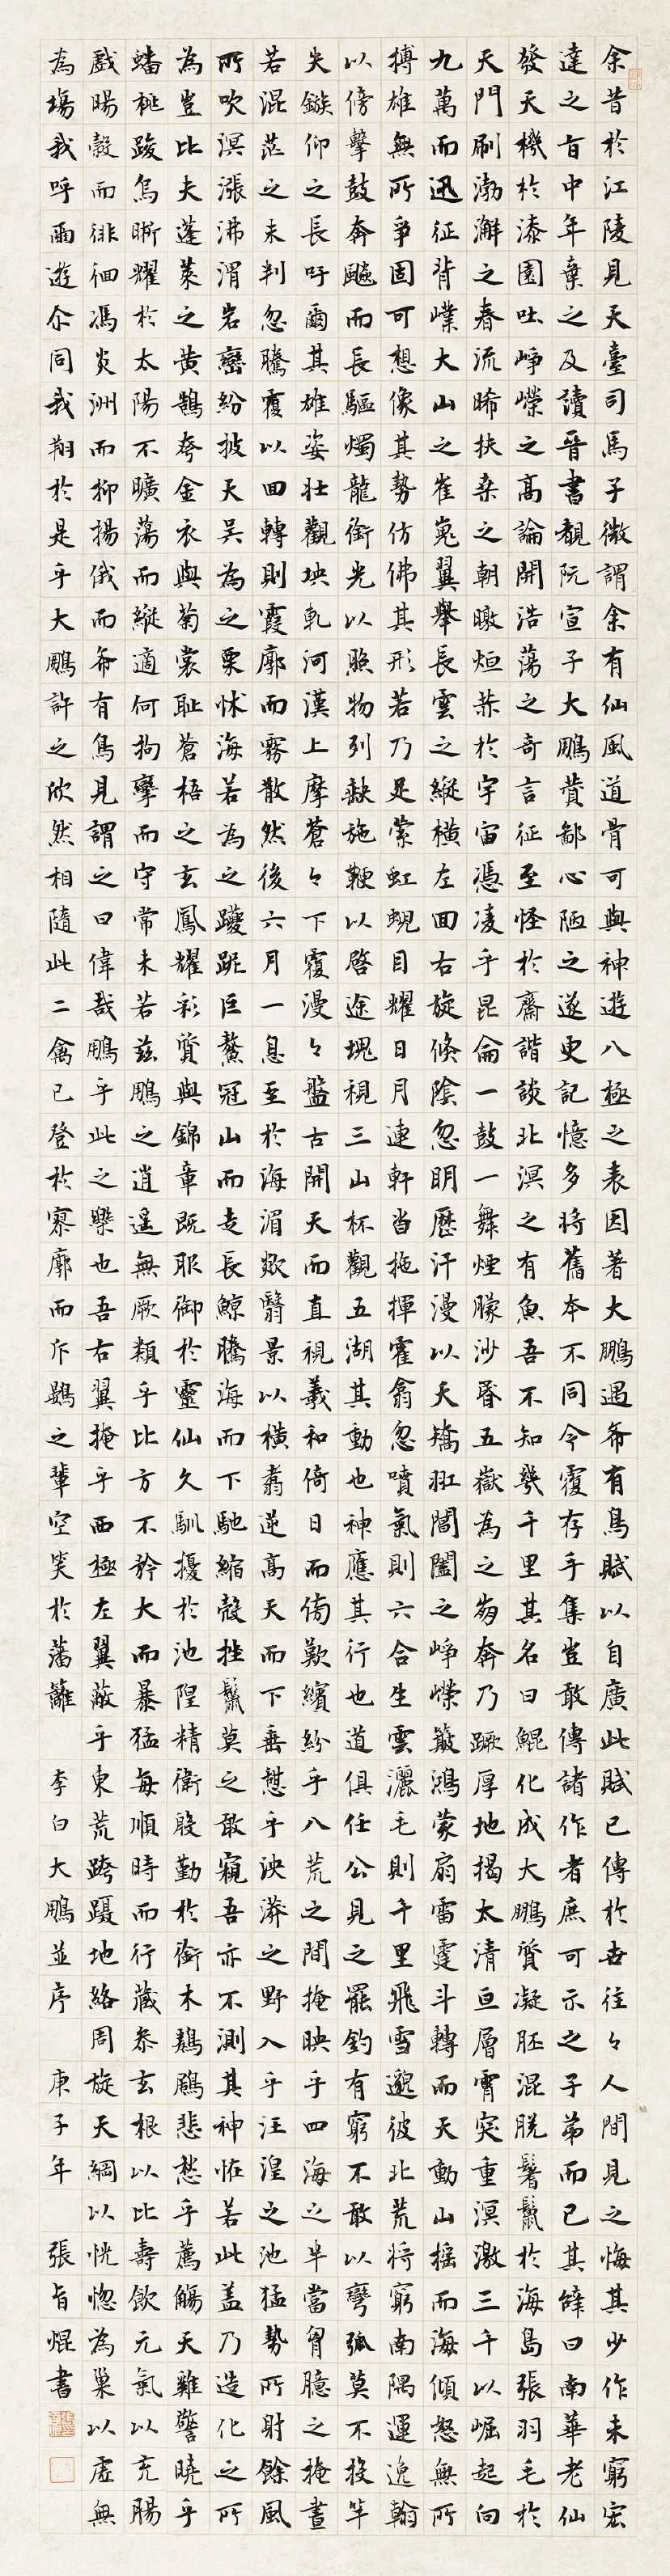 余昔於江陵見天臺司馬子微謂余有仙風道骨可與神遊八極之表因著大鵬遇希有鳥賦以自廣此賦已傳於世往々人間見之悔其少作未窮宏
達之旨中年棄之及讀晉書覩阮宣子大鵬贊鄙心陋之遂更記憶多將舊本不同今復存手集豈敢傳諸作者庶可示之子弟而已其辭曰南華老仙
發天機於漆園吐崢嶸之高論開浩蕩之奇言征至怪於齊諧談北溟之有魚吾不知幾千里其名曰鯤化成大鵬質凝胚混脫鬐鬣於海島張羽毛於
天門刷渤澥之春流晞扶桑之朝暾烜赫於宇宙憑凌乎昆侖一鼓一舞煙朦沙昏五嶽為之崩奔乃蹶厚地揭太清亘層霄突重溟激三千以崛起向
九萬而迅征背嶪大山之崔嵬翼舉長雲之縱橫左回右旋倏陰忽明歷汗漫以夭矯羾閶闔之崢嶸簸鴻蒙扇雷霆斗轉而天動山搖而海傾怒無所
搏雄無所爭固可想像其勢仿佛其形若乃足縈虹蜺目耀日月連軒沓拖揮霍翕忽噴氣則六合生雲灑毛則千里飛雪邈彼北荒將窮南隅運逸翰
以傍擊鼓奔飈而長驅燭龍銜光以照物列缺施鞭以啓途塊視三山杯觀五湖其動也神應其行也道俱任公見之罷釣有窮不敢以彎弧莫不投竿
失鏃仰之長吁爾其雄姿壯觀坱軋河漢上摩蒼々下覆漫々盤古開天而直視羲和倚日而傍歎繽紛乎八荒之間掩映乎四海之半當胷臆之掩晝
若混茫之未判忽騰覆以回轉則霞廓而霧散然後六月一息至於海湄欻翳景以橫翥逆高天而下垂憩乎泱漭之野入乎汪湟之池猛勢所射餘風
所吹溟漲沸渭岩巒紛披天吳為之栗怵海若為之躨跜巨鰲冠山而走長鯨騰海而下馳縮殼挫鬣莫之敢窺吾亦不測其神怪若此蓋乃造化之所
為豈比夫蓬萊之黃鵠夸金衣與菊裳恥蒼梧之玄鳳耀彩質與錦章既服御於靈仙久馴擾於池隍精衛殷勤於銜木鶢鶋悲愁乎薦觴天雞警曉乎
蟠桃踆烏晰耀於太陽不曠蕩而縱適何拘攣而守常未若茲鵬之逍遙無厥類乎比方不矜大而暴猛每順時而行藏參玄根以比壽飲元氣以充腸
戲暘穀而徘徊馮炎洲而抑揚俄而希有鳥見謂之曰偉哉鵬乎此之樂也吾右翼掩乎西極左翼蔽乎東荒跨躡地絡周旋天綱以恍惚為巢以虛無
為場我呼爾遊尒同我翔於是乎大鵬許之欣然相隨此二禽已登於寥廓而斥鷃之輩空笑於藩籬 李白大鵬並序 庚子年 張旨焜書